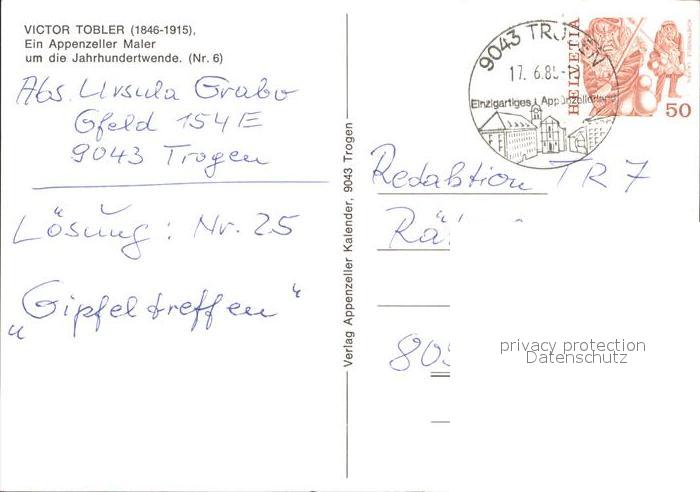 VICTOR TOBLER (1846-1915),
Ein Appenzeller Maler
um die Jahrhundertwende. (Nr. 6)
Abs. Ursula Grabo
Gfeld 154 E
9043 Trogen
Lösung: Nr. 25
„Gipfeltreffen"
Verlag Appenzeller Kalender, 9043 Trogen
9043 TROGEN
17. 6.85-
Einzigartiges Appenzellerland
HELVETIA
50
Redaktion TR 7
Rä
805
privacy protection
Datenschutz